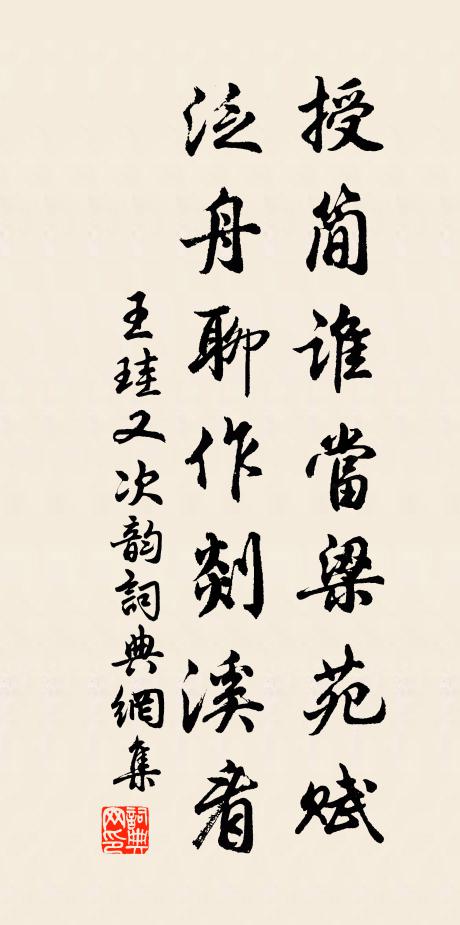 授简谁當梁苑赋
泛舟聊作剡溪看
王珪又次韵詞典網集
詞典網印